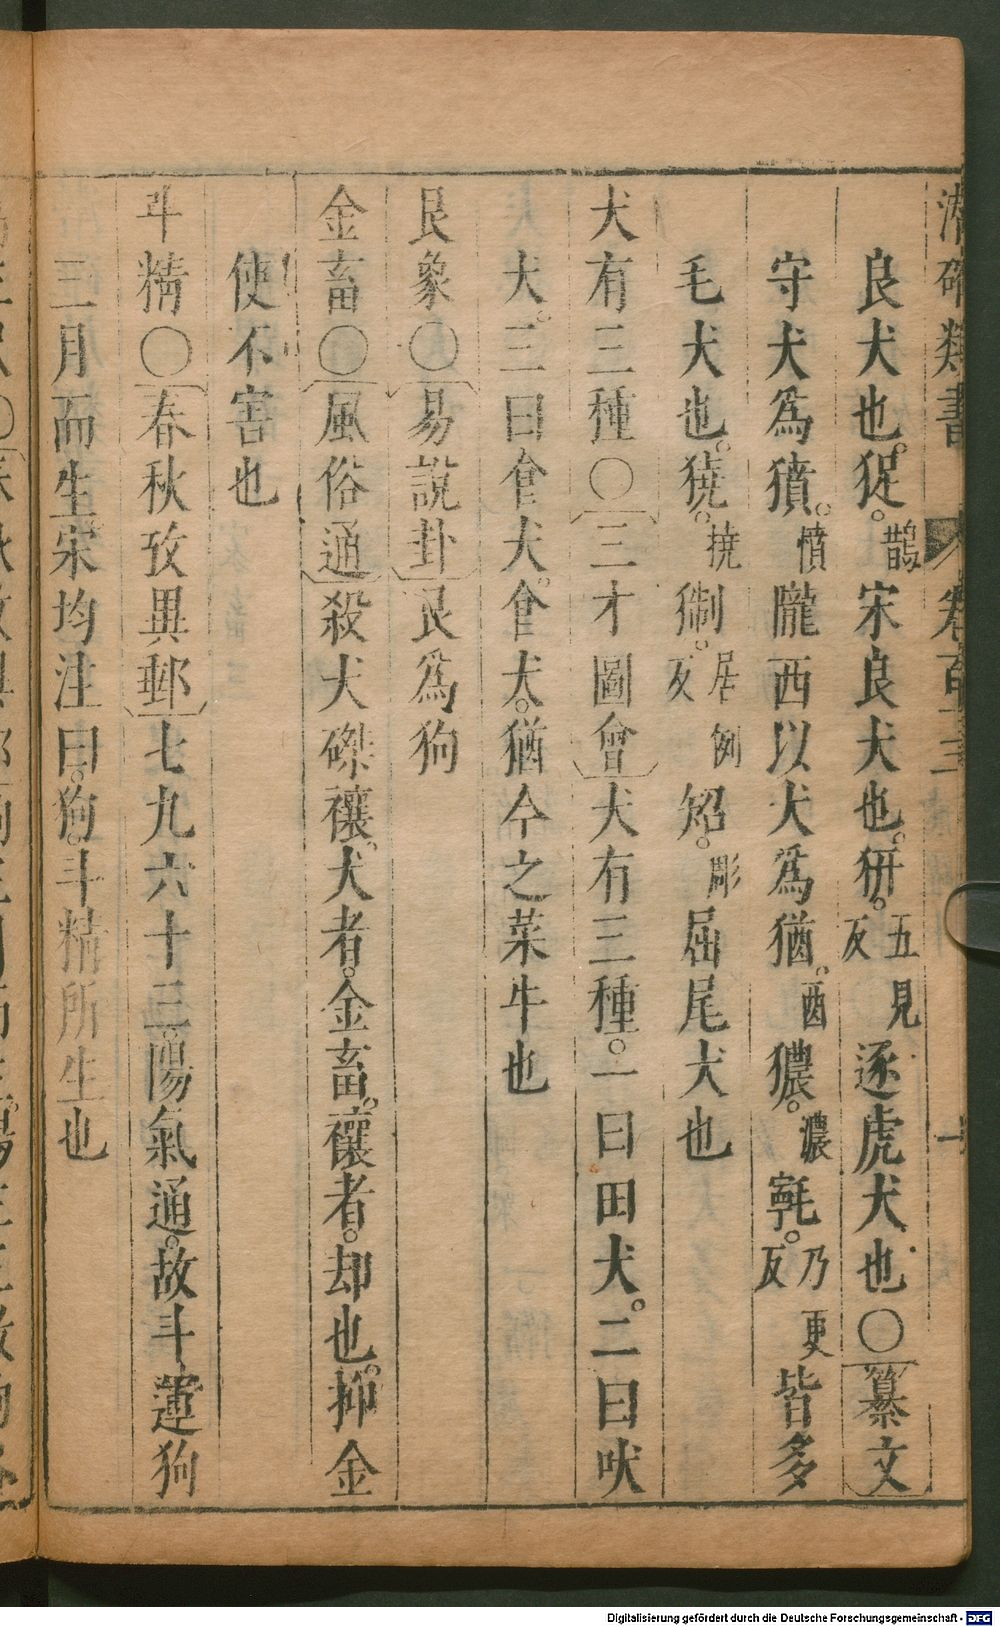 潛確類書 卷百十三 十
良犬也。猑。鵲宋良犬也。猏。五見反逐虎犬也○纂文
守犬爲獖。憤隴西以犬爲猶。酉獳。濃㲌。乃更反皆多
毛犬也。獟。撓猘。居例反㹿。彫屈尾犬也
犬有三種○三才圖會犬有三種。一曰田犬。二曰吠
犬。三曰食犬。食犬。猶今之菜牛也
艮象○易說卦艮爲狗
金畜○風俗通殺犬磔禳。犬者。金畜。禳者。却也。抑金
使不害也
斗精○春秋攷異郵七九六十三。陽氣通。故斗運狗
三月而生宋均注曰。狗。斗精所生也
Digitalisierung gefördert durch die Deutsche Forschungsgemeinschaft - DFG